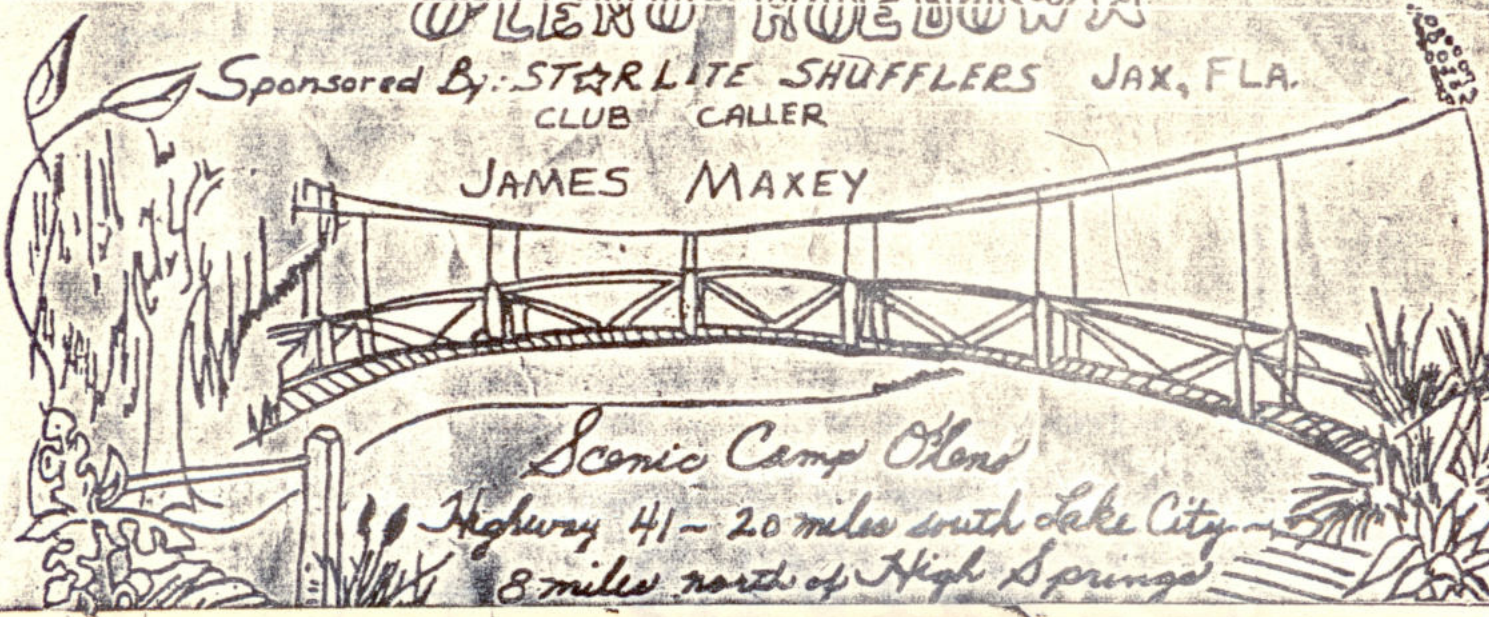 O'LENO HOEDOWN
Sponsored By: STARLITE SHUFFLERS JAX, FLA.
CLUB CALLER
JAMES MAXEY
Scenic Camp O'Leno
Highway 41 ~ 20 miles south Lake City ~
8 miles north of High Springs